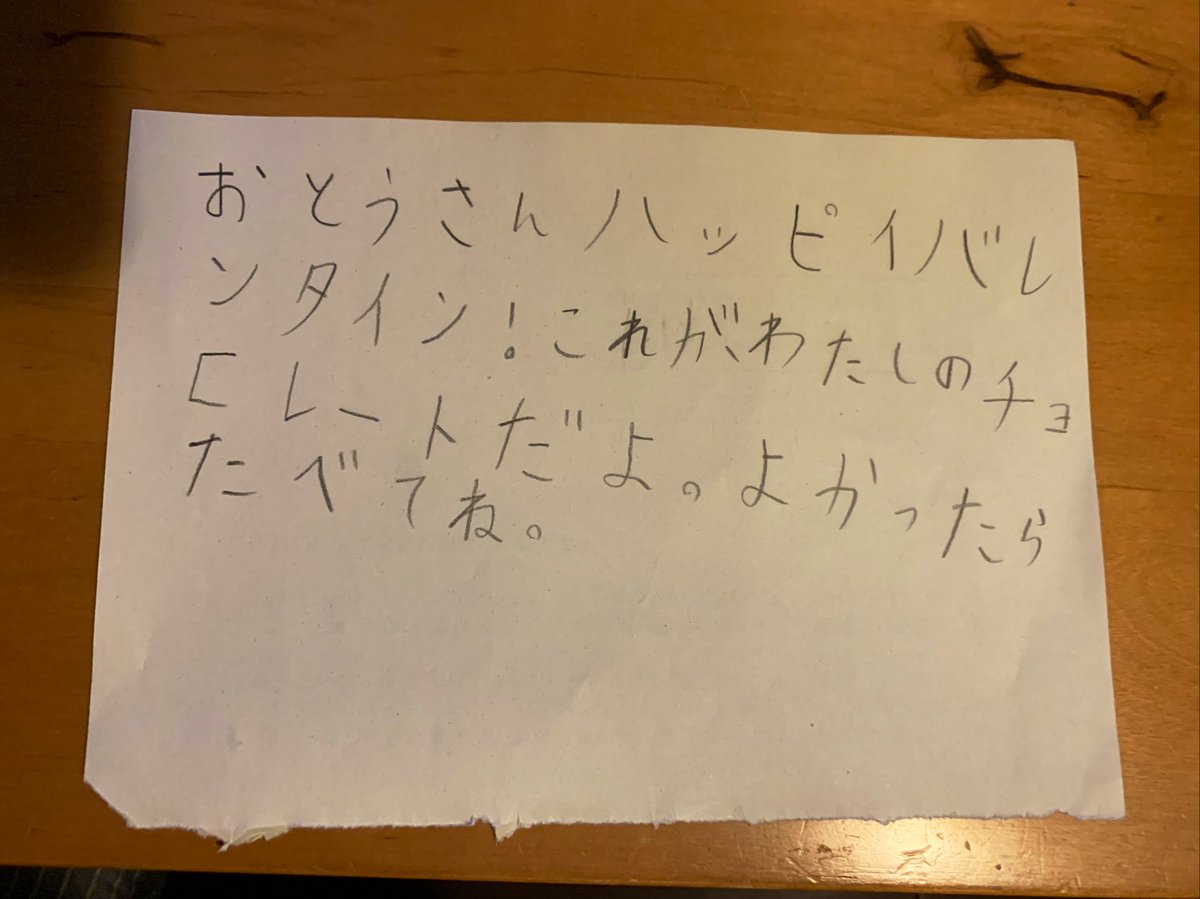 おとうさんハッピイバレ
ンタイン!これがわたしのチョ
コレートだよ。よかったら
たべてね。